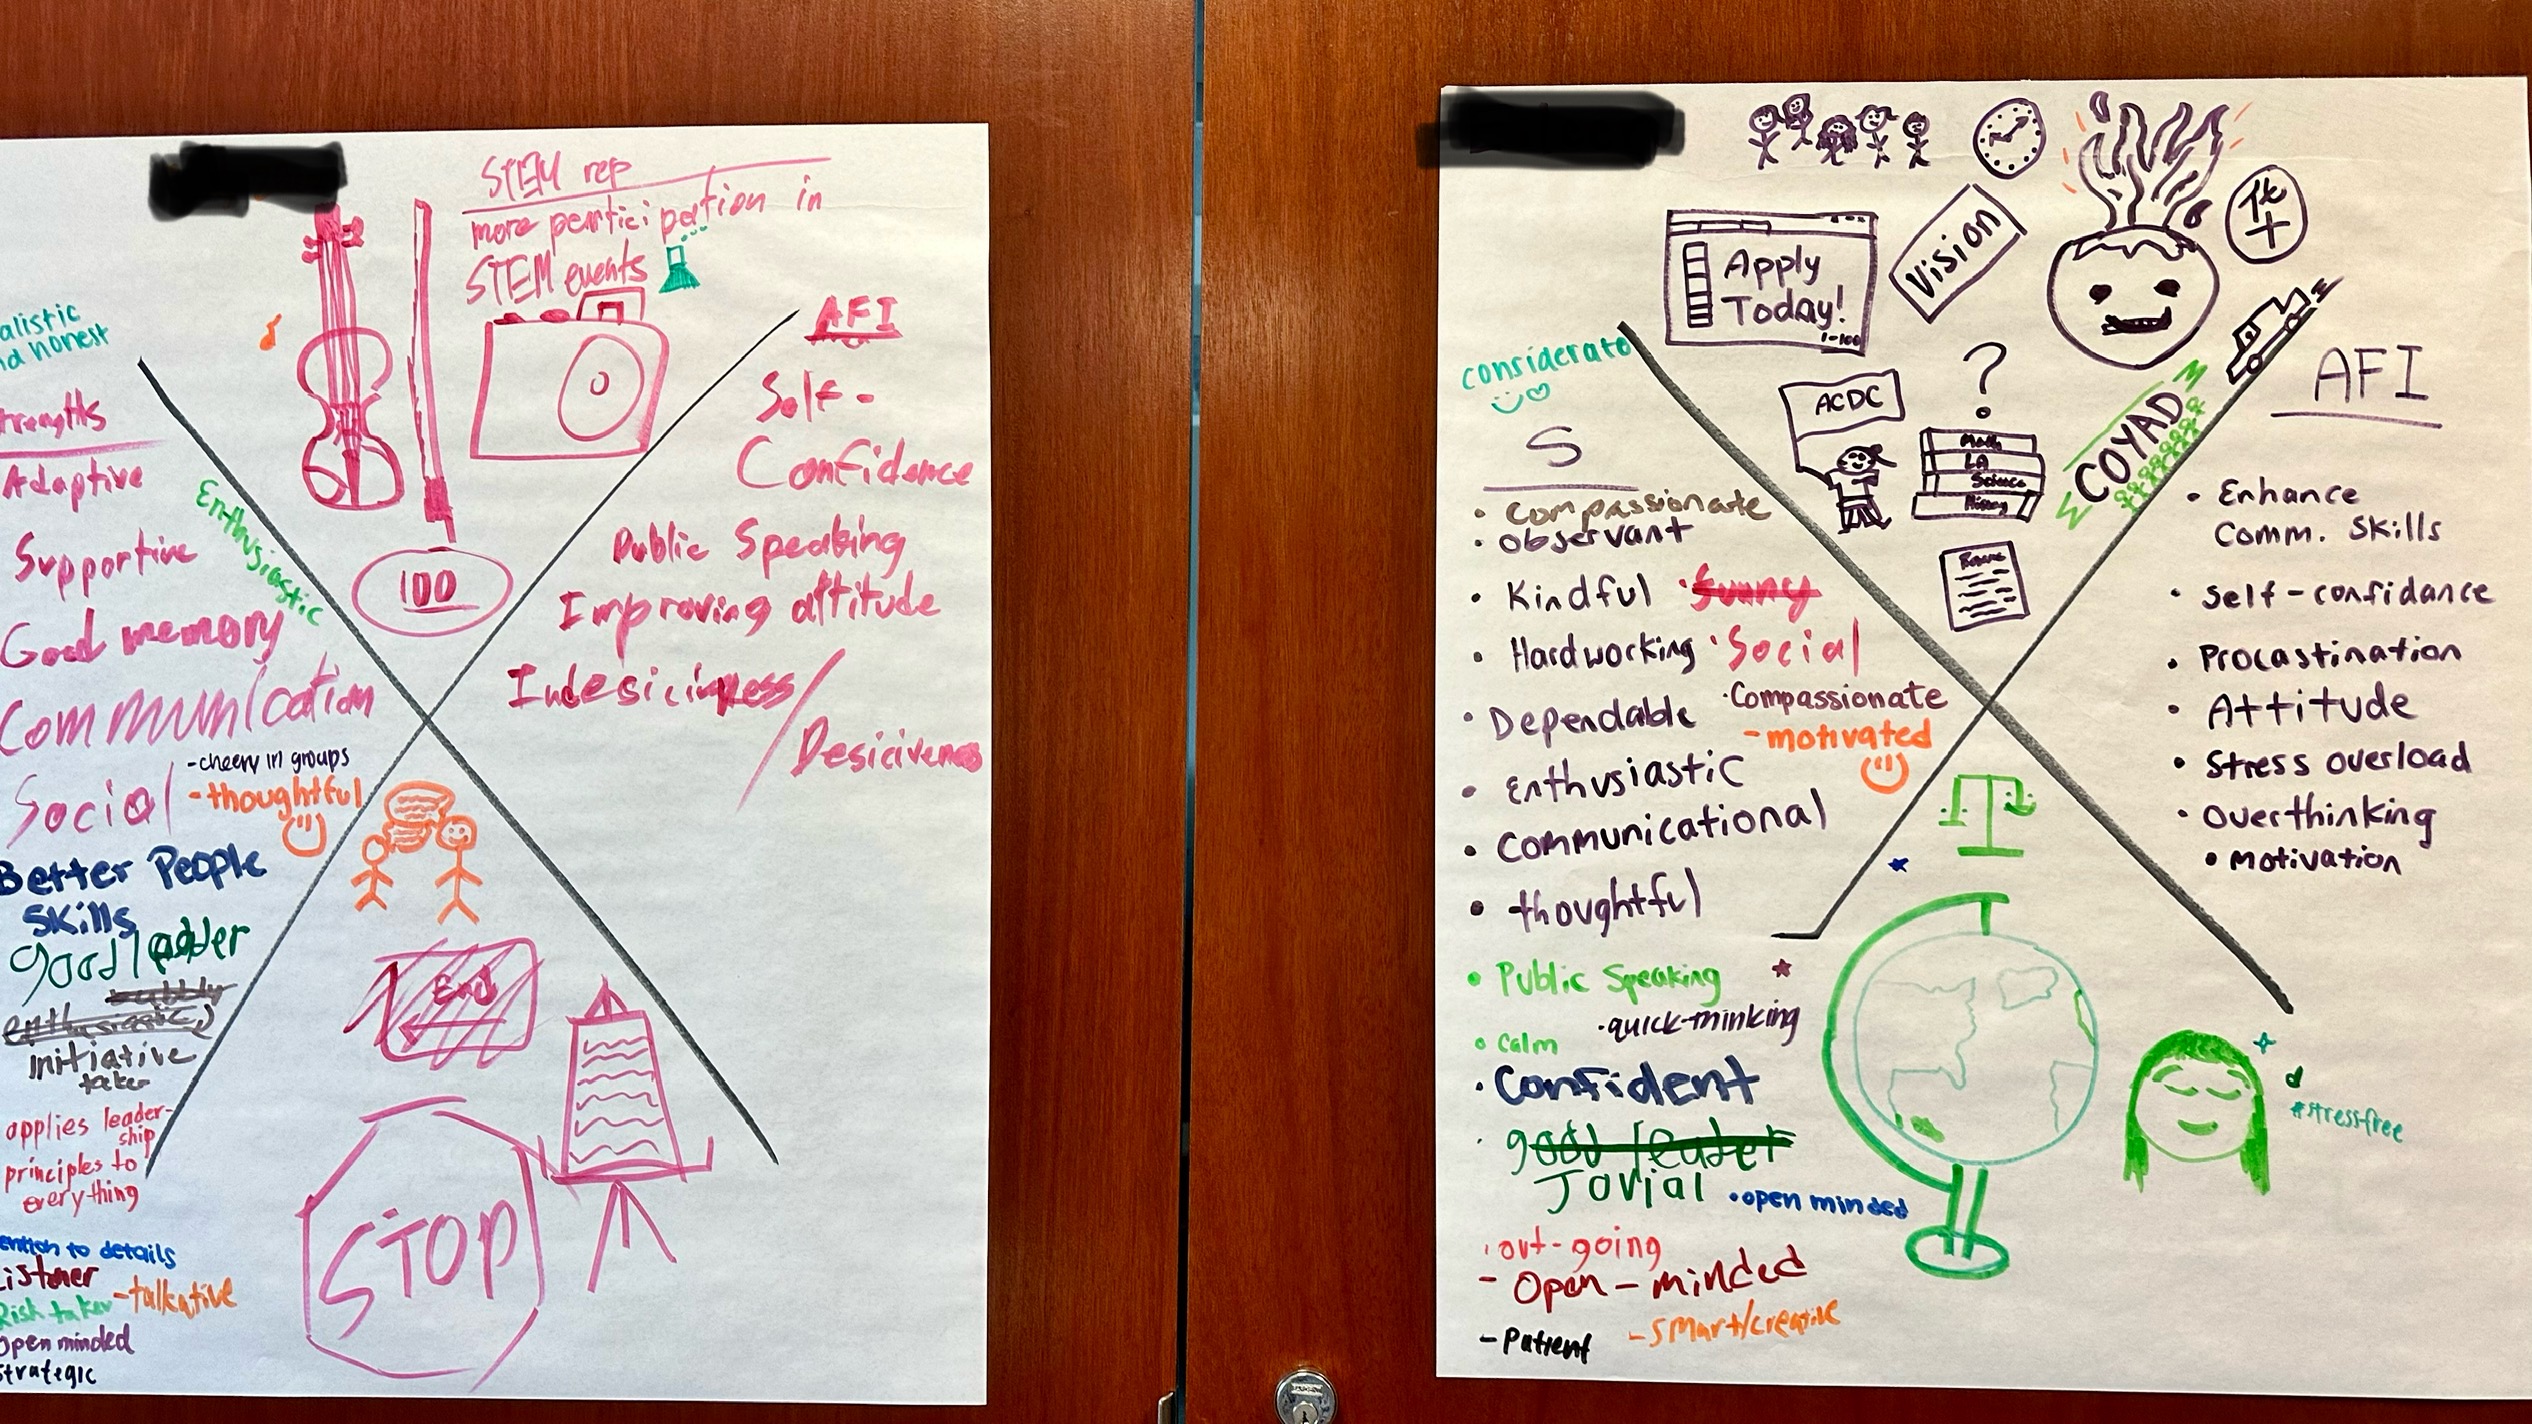 STEM rep
more perticipation in
STEM events
alistic
nd honest
trengths
Adaptive
Supportive
Good memory
Communication
Social
Enthusiastic
-cheery in groups
-thoughtful
Better People
Skills
good leader
bubbly
enthusiastic
initiative
taker
applies leader-
ship
principles to
everything
ention to details
Listener
Risk taker
-talkative
Open minded
Strategic
100
AFI
Self-
Confidence
Public Speaking
Improving attitude
Desiciveness
End
STOP
Apply
Today!
1-100
Vision
1k
+
ACDC
?
Math
LA
Science
History
COYAD
Resume
considerate
S
• Compassionate
• Observant
• Kindful
• Funny
• Hardworking
• Social
• Dependable
• Compassionate
- motivated
• Enthusiastic
• Communicational
• thoughtful
• Public Speaking
• quick-thinking
• Calm
• Confident
• good leader
Jovial
• open minded
• out-going
- Open-minded
- smart/creative
- Patient
AFI
• Enhance
Comm. Skills
• Self-confidance
• Procastination
• Attitude
• Stress overload
• Overthinking
• motivation
#stressfree